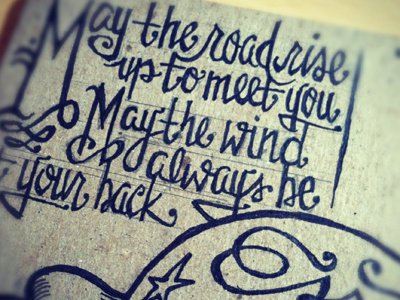 May the road rise
up to meet you
May the wind
always be
your back